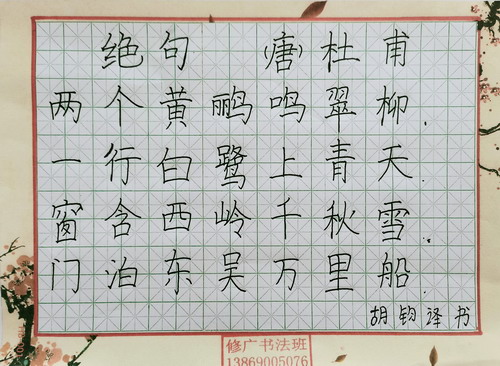 绝句 (唐) 杜甫
两个黄鹂鸣翠柳.
一行白鹭上青天.
窗含西岭千秋雪.
门泊东吴万里船.
胡钧译书
修广书法班
13869005076